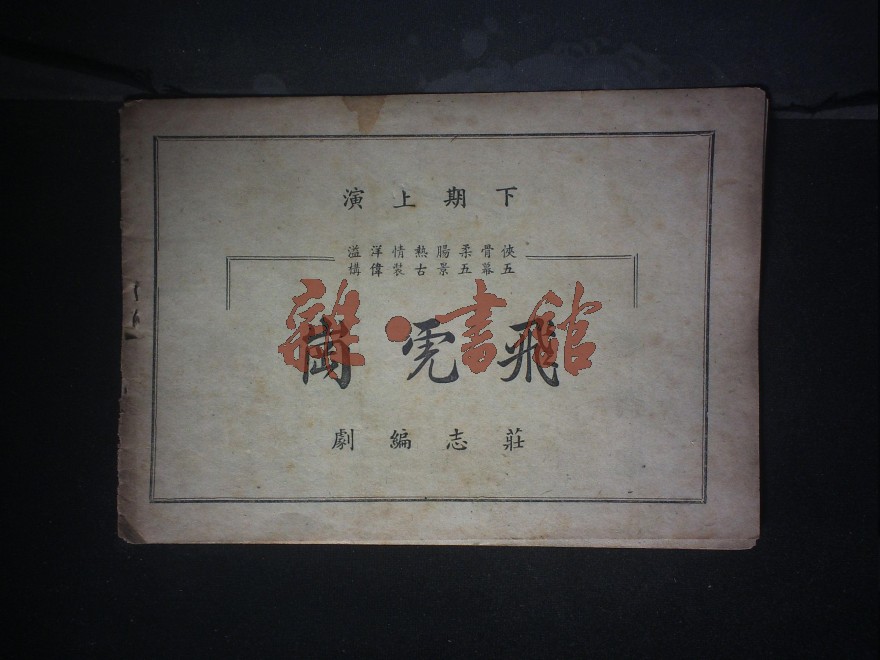 下期上演
俠骨柔腸熱情洋溢
五幕五景古裝偉構
飛虎崗
雜·書館
莊志編劇